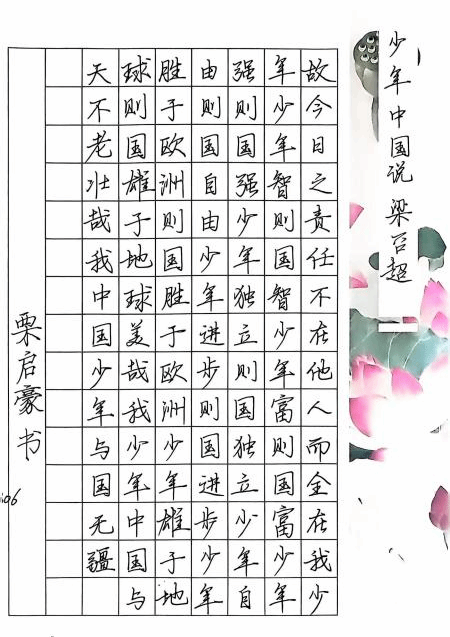 少年中国说 梁启超
故今日之责任不在他人而全在我少
年少年智则国智少年富则国富少年
强则国强少年独立则国独立少年自
由则国自由少年进步则国进步少年
胜于欧洲则国胜于欧洲少年雄于地
球则国雄于地球美哉我少年中国与
天不老壮哉我中国少年与国无疆
栗启豪书